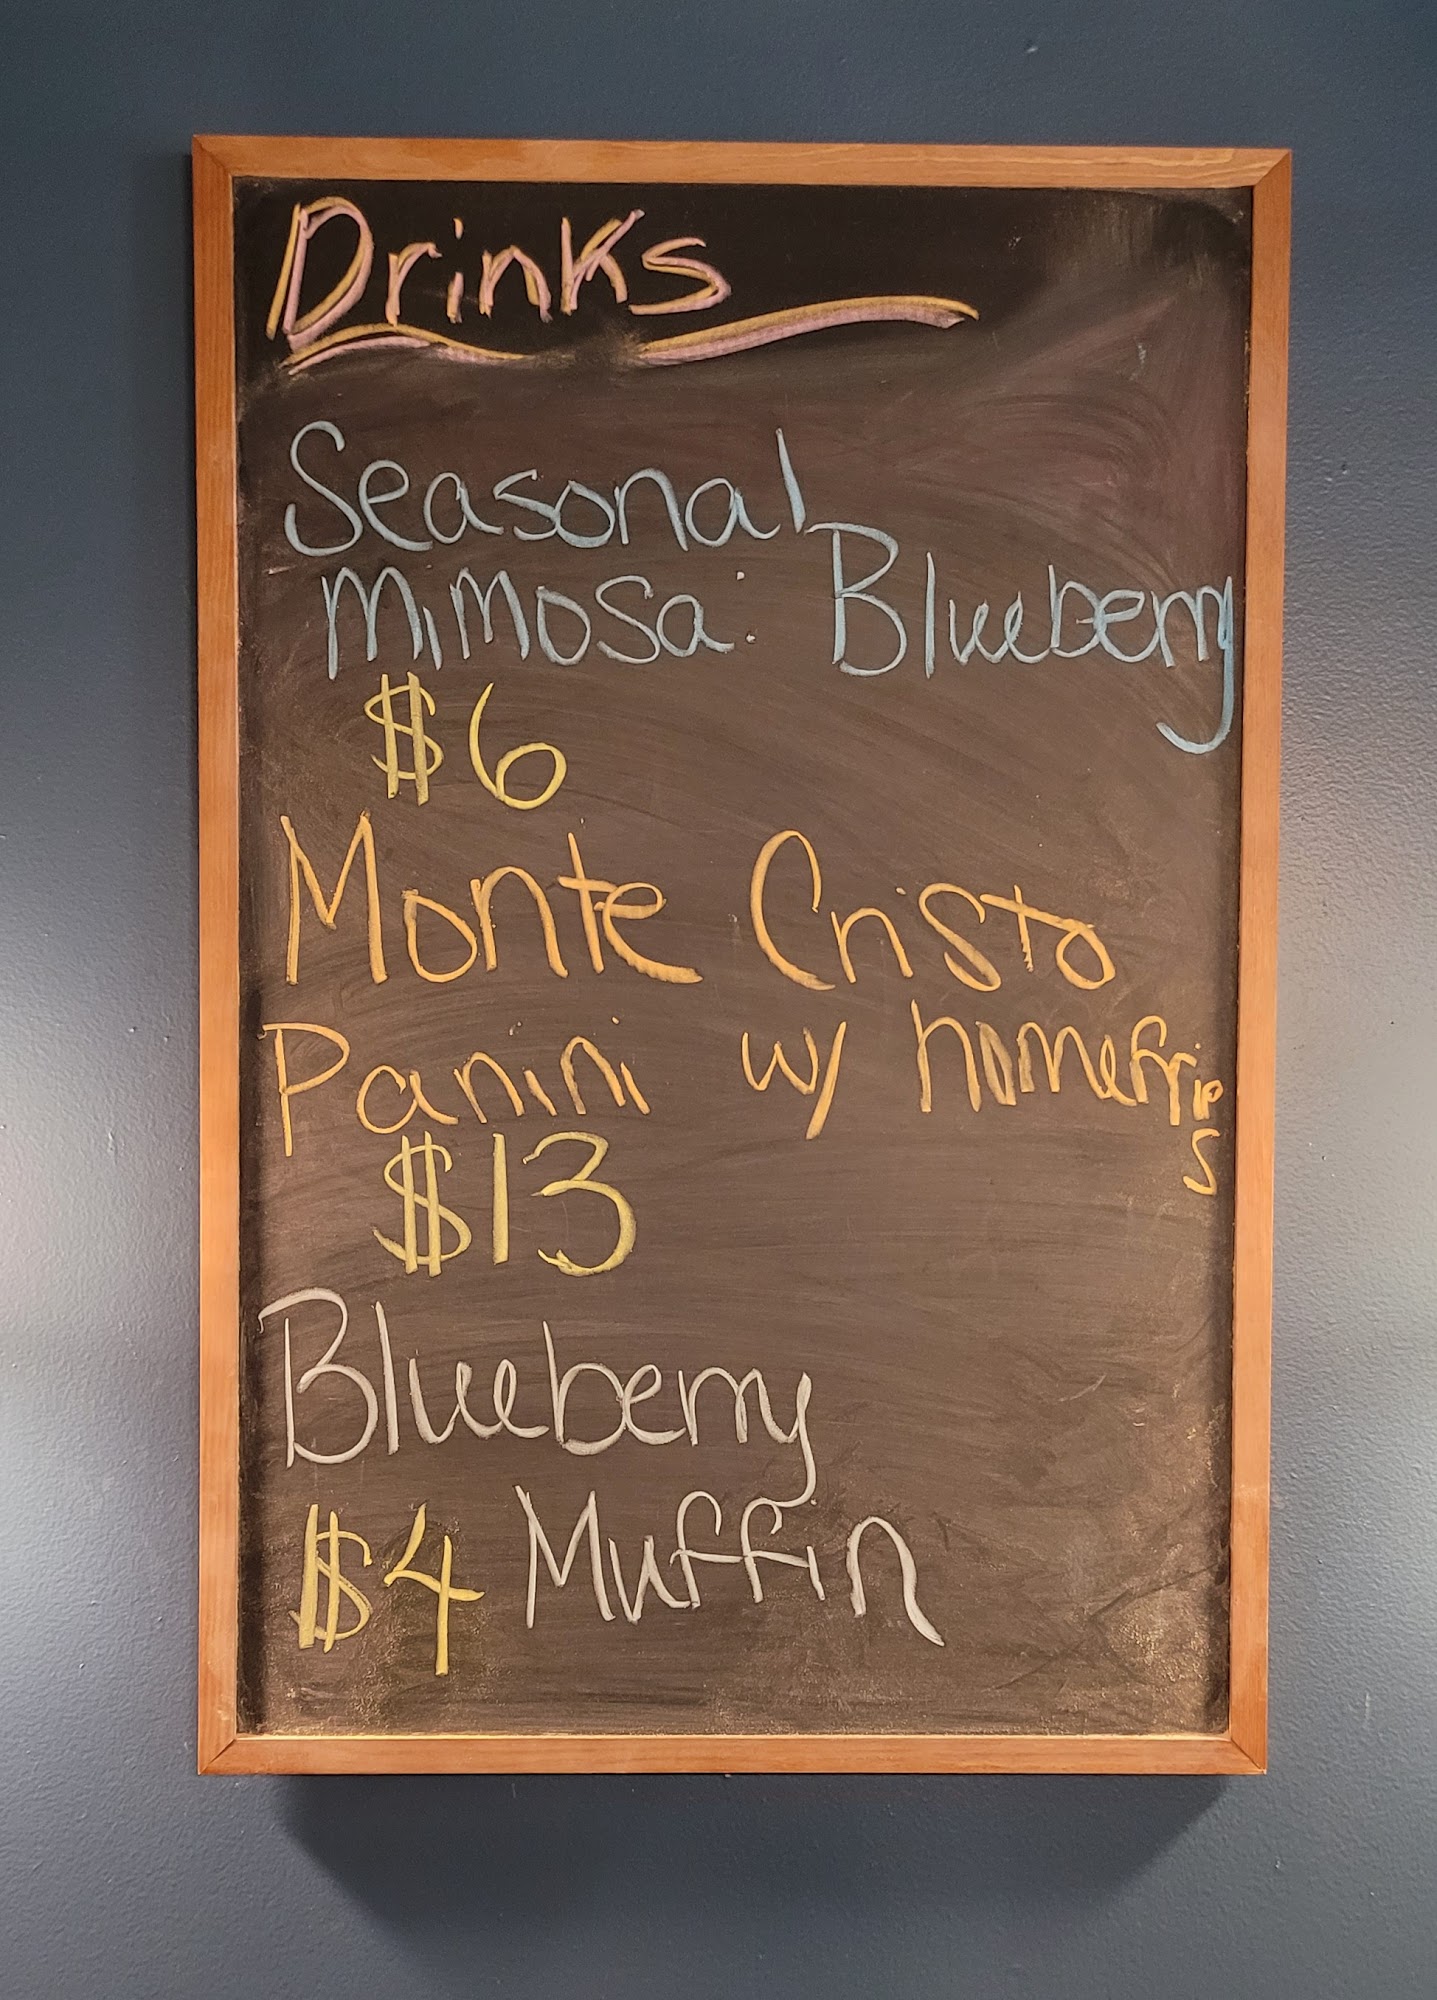 Drinks
Seasonal
Mimosa: Blueberry
$6
Monte Cristo
Panini w/ homefries
$13
Blueberry
$4 Muffin